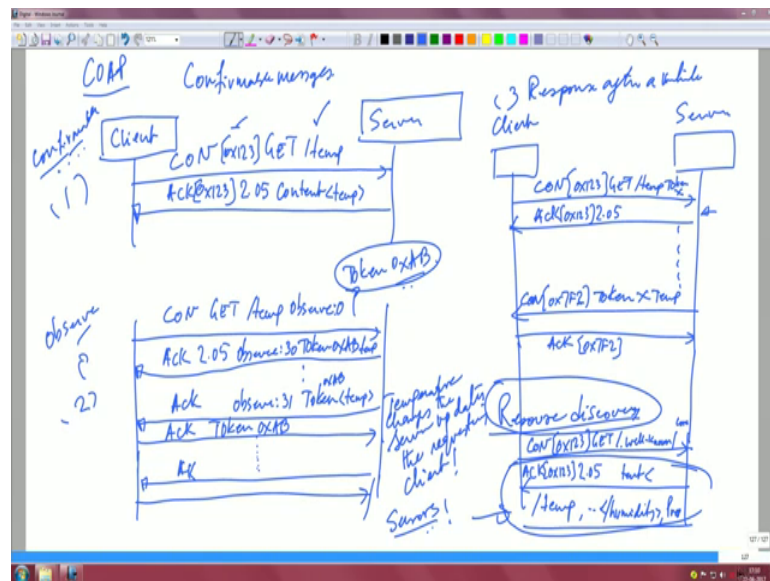 COAP Confirmable messages
confirmable
(1)
Client
Server
CON [0x123] GET /temp
ACK[0x123] 2.05 Content<temp>
Token 0xAB
observe
(2)
CON GET /temp observe:0
ACK 2.05 observe:30 Token 0xAB temp
ACK observe:31 Token <temp>
0xAB
ACK Token 0xAB
ACK
Temperature
changes the
server updates
the requesting
client!
Sensors!
(3 Response after a while
Client
Server
CON[0x123]GET /temp Token
X
ACK[0x123]2.05
CON[0x7F2] Token X Temp
ACK [0x7F2]
Resourse discovery
CON[0x123]GET/.well-known/
core
ACK[0x123] 2.05
/temp, ..</humidity>,
127 / 127
127